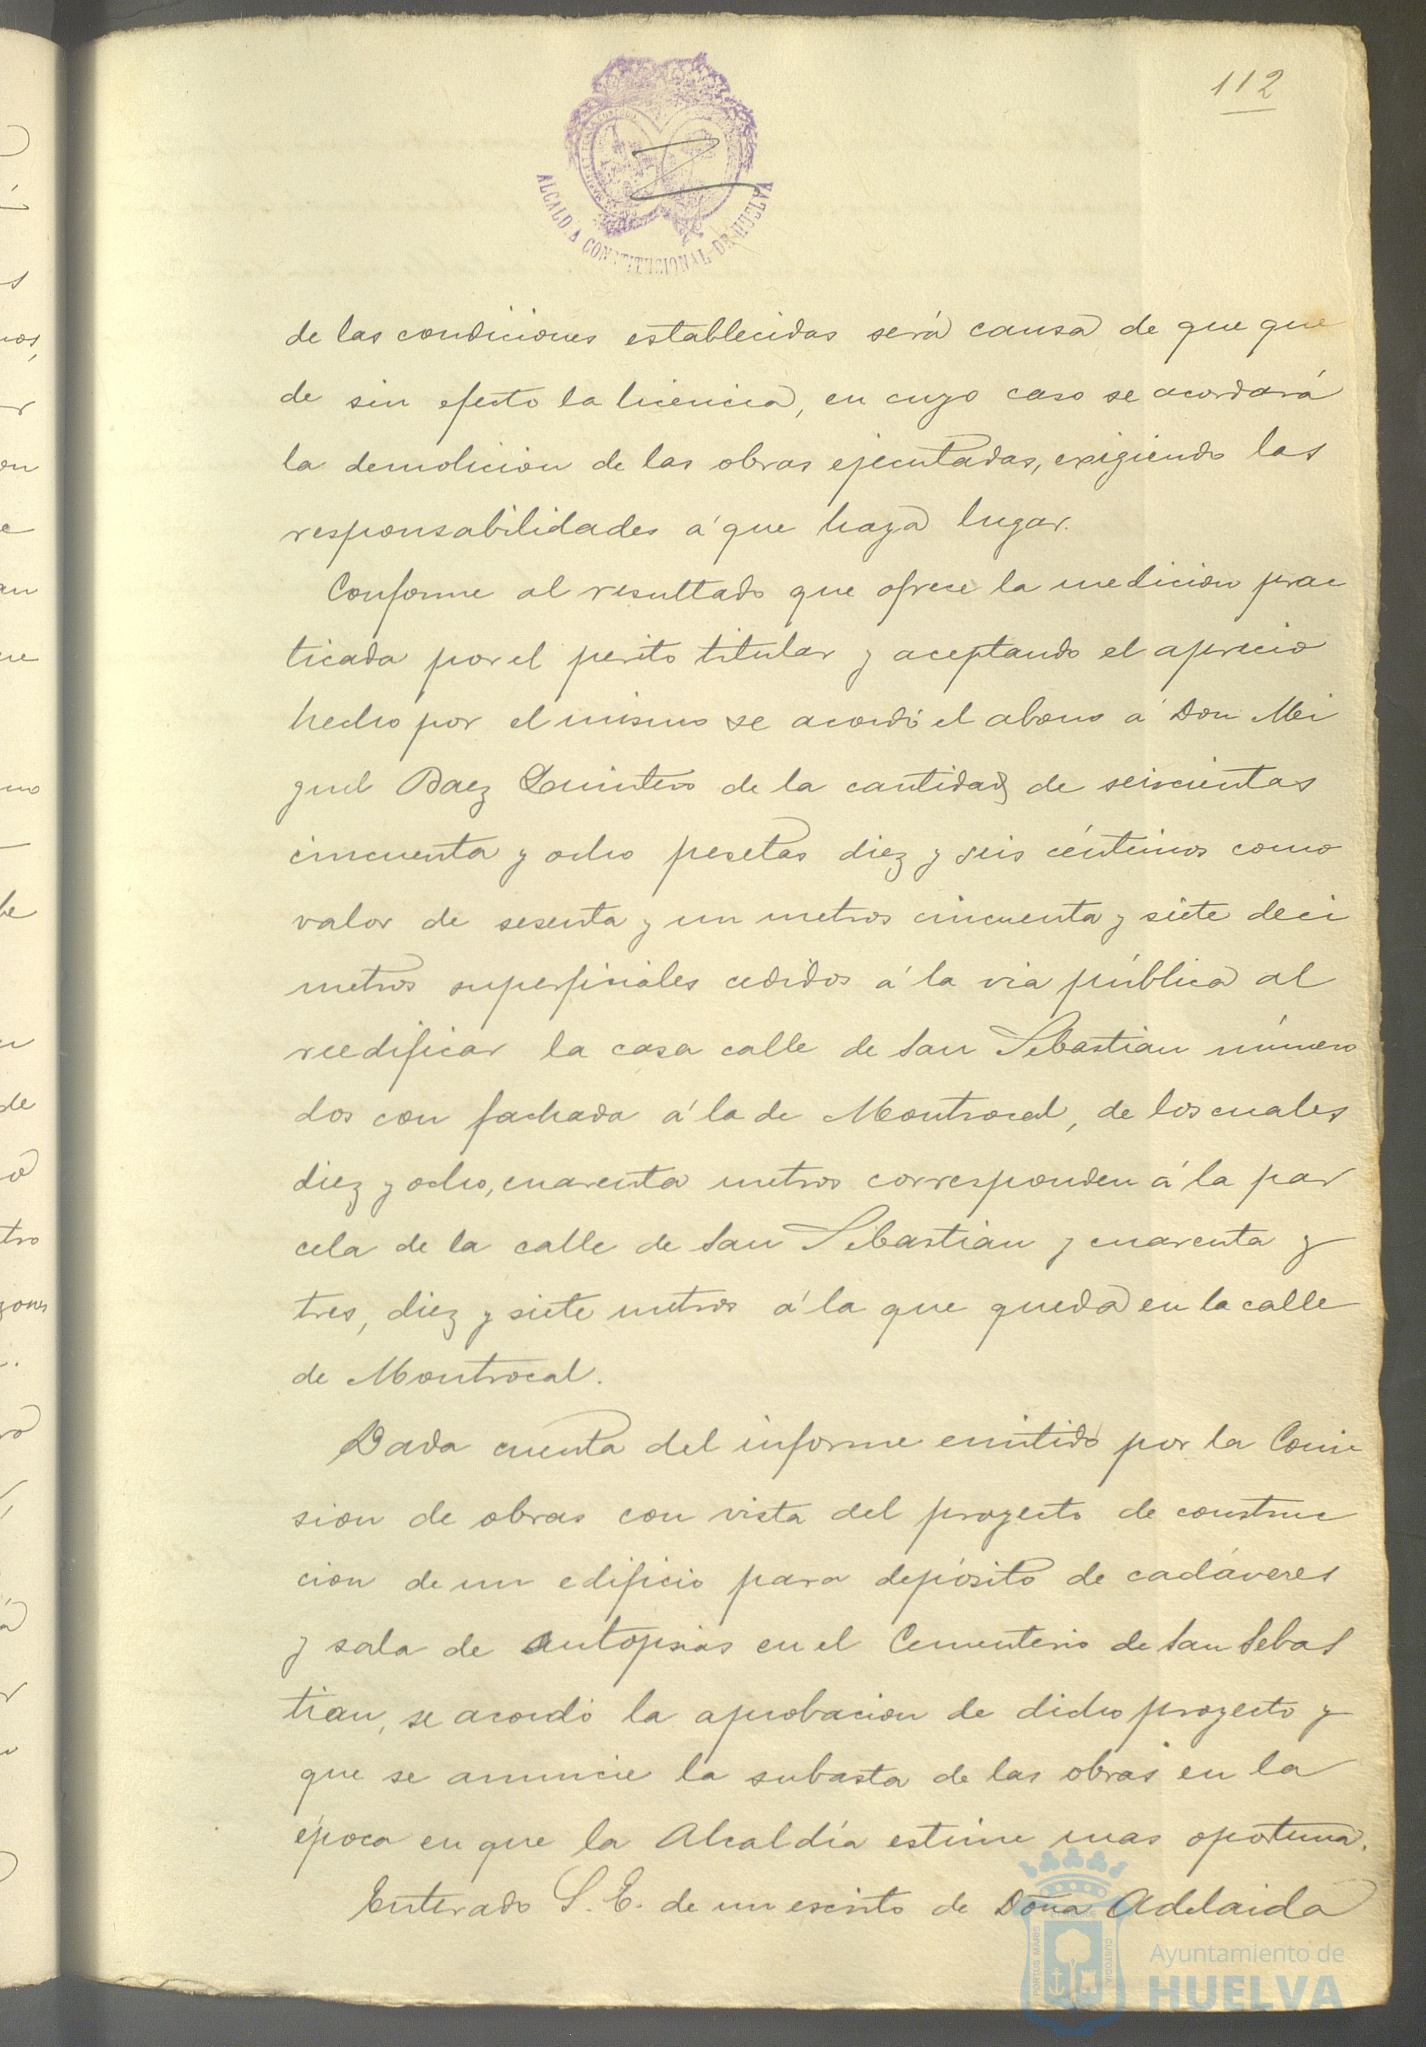 112
ALCALDIA CONSTITUCIONAL DE HUELVA
de las condiciones establecidas será causa de que que
de sin efecto la licencia, en cuyo caso se acordará
la demolicion de las obras ejecutadas, exigiendo las
responsabilidades á que haya lugar.
Conforme al resultado que ofrece la medicion prac
ticada por el perito titular y aceptando el aprecio
hecho por el mismo se acordó el abono á Don Mi
guel Baez Quintero de la cantidad de seiscientas
cincuenta y ocho pesetas diez y seis céntimos como
valor de sesenta y un metros cincuenta y siete deci
metros superficiales cedidos á la via pública al
reedificar la casa calle de San Sebastian número
dos con fachada á la de Montrocal, de los cuales
diez y ocho, cuarenta metros corresponden á la par
cela de la calle de San Sebastian y cuarenta y
tres, diez y siete metros á la que queda en la calle
de Montrocal.
Dada cuenta del informe emitido por la Comi
sion de obras con vista del proyecto de construc
cion de un edificio para depósito de cadáveres
y sala de autopsias en el Cementerio de San Sebas
tian, se acordó la aprobacion de dicho proyecto y
que se anuncie la subasta de las obras en la
época en que la Alcaldía estime mas oportuna.
Enterado S. E. de un escrito de Doña Adelaida
Ayuntamiento de
HUELVA